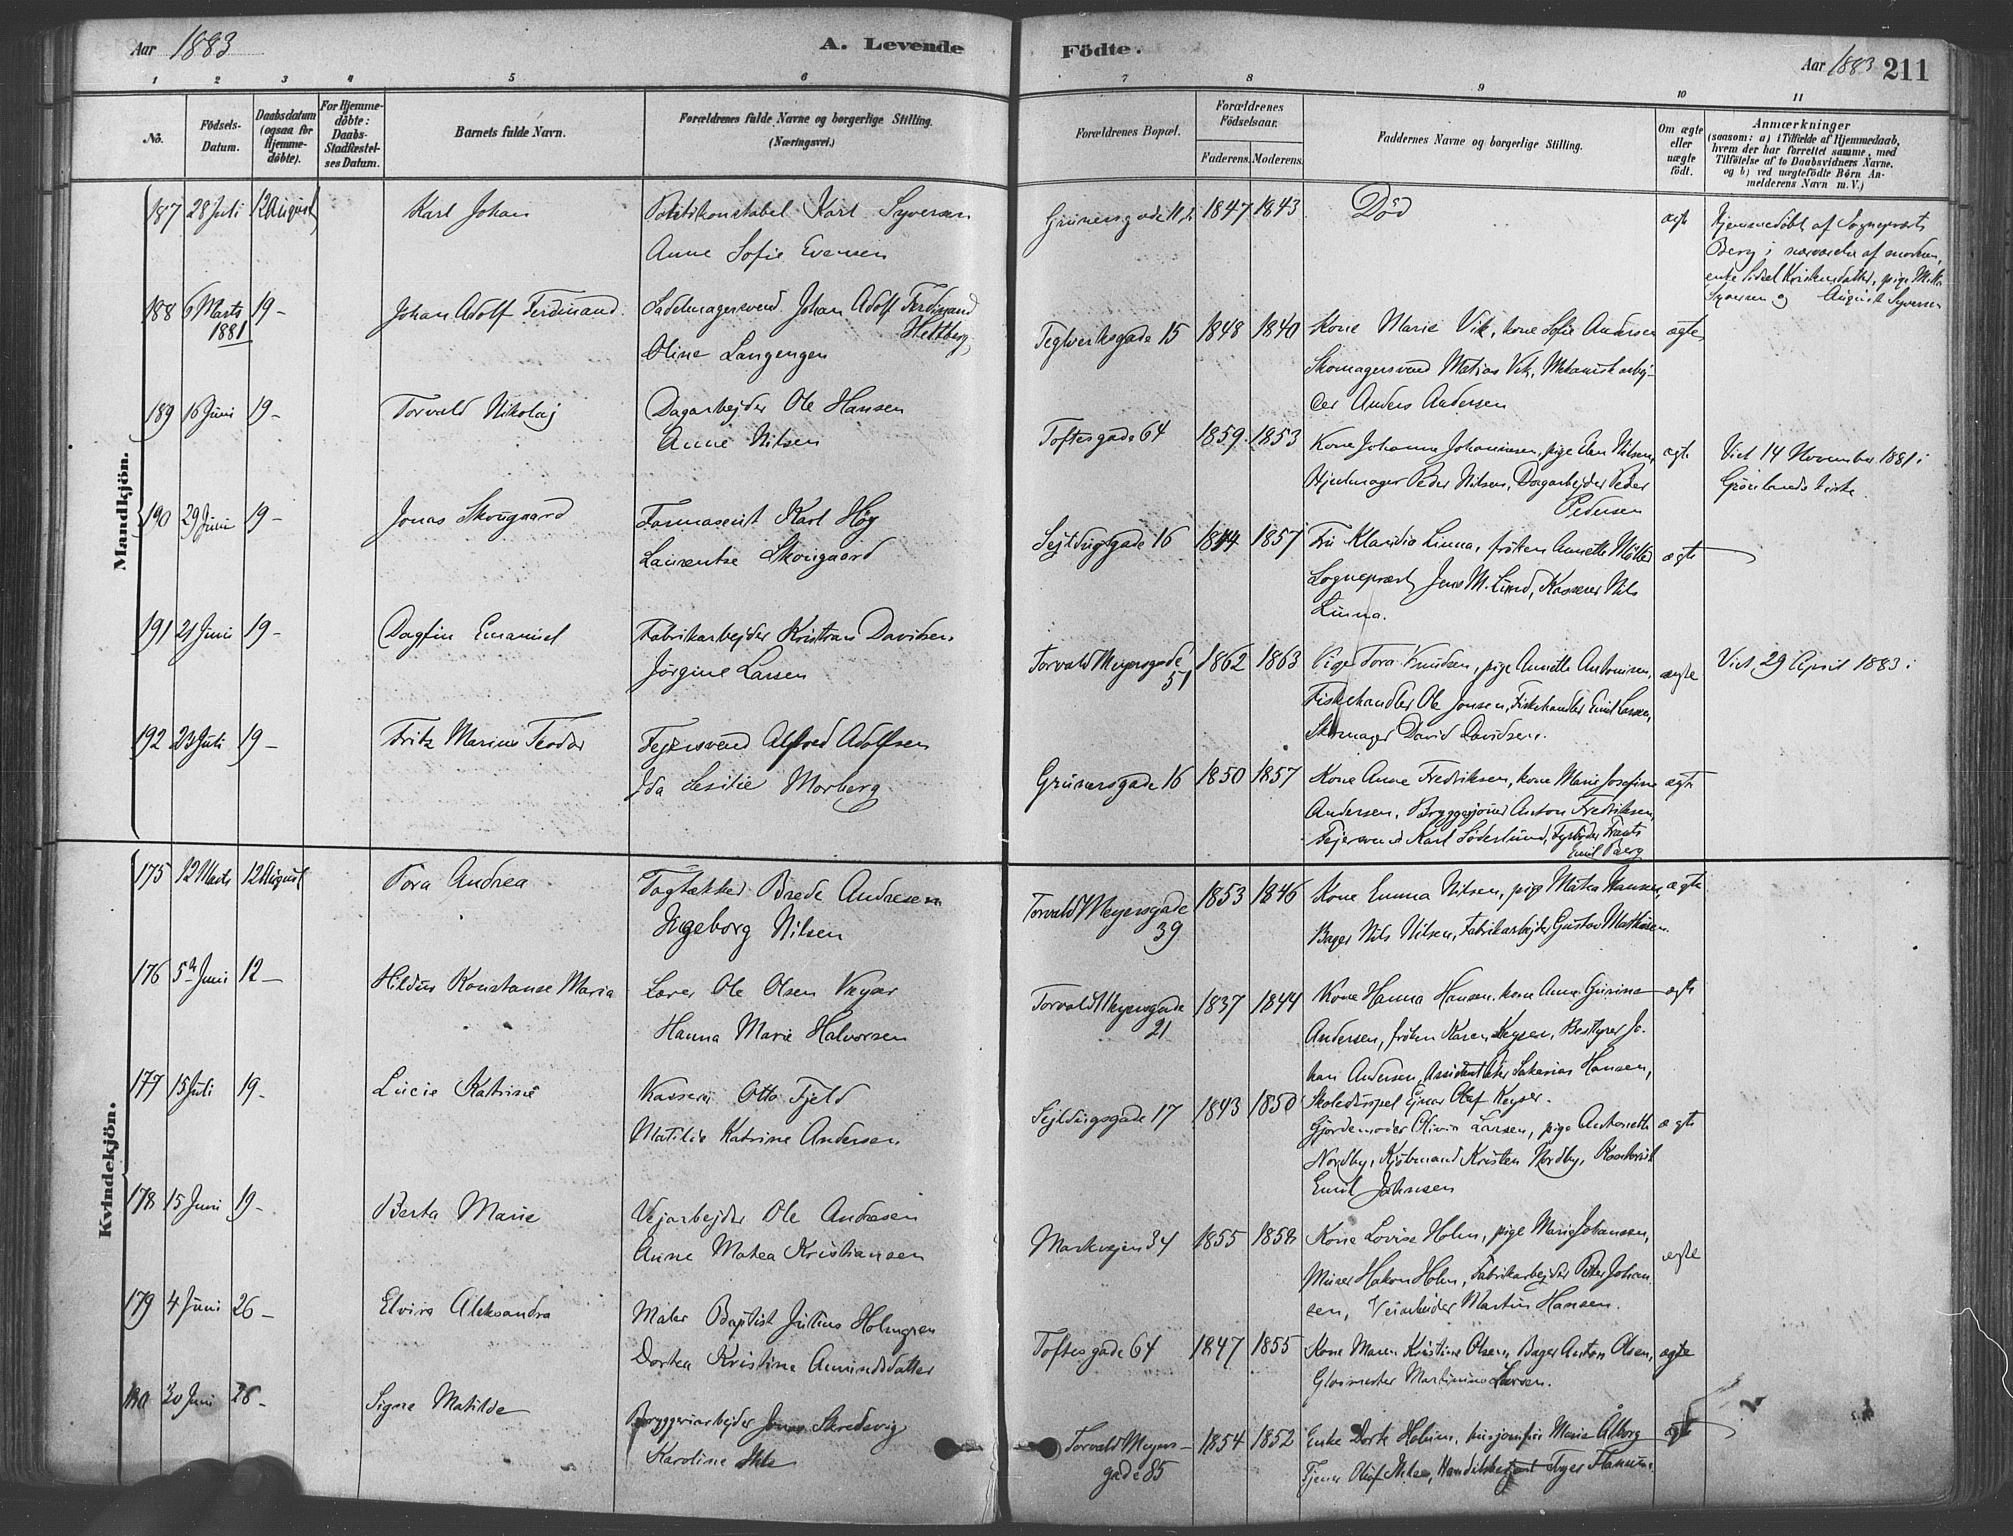 Aar 1883
A. Levende
Födte.
Aar 1883 211
1 2 3 4 5 6 7 8 9 10 11
No.
Födsels-Datum.
Daabsdatum (ogsaa for Hjemme-döbte).
For Hjemme-döbte: Daabs-Stadfæstel-ses Datum.
Barnets fulde Navn.
Forældrenes fulde Navne og borgerlige Stilling. (Næringsvei.)
Forældrenes Bopæl.
Forældrenes Födselsaar.
Faderens. Moderens.
Faddernes Navne og borgerlige Stilling.
Om ægte eller uægte födt.
Anmærkninger
(saasom: a) i Tilfælde af Hjemmedaab,
hvem der har forrettet samme, med
Tilföielse af to Daabsvidners Navne.
og b) ved uægtefödte Börn An-
melderens Navn m. V.)
Mandkjön.
187 28 Juli 12 August Karl Johan Politikonstabel Karl Syversen
Anne Sofie Evensen
Grünersgade 11 1847 1843 Död ægte Hjemmedöbt af Sognepræst
Berg i nærværelse af
Syversen og August Syversen
188 6 Marts 1881 19- Johan Adolf Ferdinand Sadelmagersvend Johan Adolf Ferdinand
Oline Langengen
Teglverksgade 15 1848 1840 Kone Marie Vik, kone Sofie Andersen ægte
Skomagersvend Matias Vik, Mekanisk arbej-
der Anders Andersen
189 16 Juni 19- Torvald Nikolaj Dagarbejder Ole Hansen
Anne Nilsen
Toftesgade 64 1859 1853 Kone Johanne Johannesen, pige Nilsen, ægte Viet 14 November 1881 i
Hjulmager Peder Nilsen, Dagarbejder Peder Grønlands kirke.
Pedersen
190 29 Juni 19- Jonas Skougaard Farmaseut Karl Høy
Laurentse Skougaard
Sejldugsgade 16 1844 1857 Fru Klaudia Linna, fröken Annette Möller ægte
Sognepræst Jens M. Lund, Kasserer Nils
Linna.
191 21 Juni 19- Dagfin Emanuel Fabrikarbejder Kristian Davidsen
Jörgine Larsen
Torvald Meyersgade 51 1862 1863 Pige Tora Knudsen, pige Annette Antonisen, ægte Viet 29 April 1883 i
Fiskehandler Ole Jonsen, Fiskehandler Emil Larsen,
Skomager David Davidsen.
192 23 Juli 19- Fritz Marius Teodor Fejersvend Alfred Adolfsen
Ida Morberg
Grünersgade 16 1850 1857 Kone Anne Fredriksen, kone Marie Josefine ægte
Andersen, Anton Fredriksen,
Fejersvend Karl Söderlund, Fyrböder Frants
Emil Berg
Kvindekjön.
175 12 Marts 12 August Tora Andrea Tagtækker Brede Andresen
Ingeborg Nilsen
Torvald Meyersgade 39 1853 1846 Kone Emma Nilsen, pige Matea Hansen, ægte
Bager Nils Nilsen, Fabrikarbejder Gustav Mathisen.
176 5 Juni 12- Hildur Konstanse Maria Lærer Ole Olsen
Hanna Marie Halvorsen
Torvald Meyersgade 21 1837 1844 Kone Hanna Hansen, kone Anne Gurine ægte
Andersen, fröken Karen Keyser, Bestyrer Jo-
han Andersen, Assistent Sakarias Hansen,
Ejnar Olaf Keyser.
177 15 Juli 19- Lucie Katrine Kasserer Otto Fjeld
Matilde Katrine Andersen
Sejldugsgade 17 1843 1850 Gjordemoder Olivia Larsen, pige Antonette ægte
Nordby, Kjöbmand Kristen Nordby,
Emil Johnsen
178 15 Juni 19- Berta Marie Vejarbejder Ole Andresen
Anne Matea Kristiansen
Markvejen 34 1855 1858 Kone Lovise Holm, pige Marie Johansen, ægte
Murer Hakon Holm, Fabrikarbejder Petter Johan-
sen, Veiarbeider Martin Hansen.
179 4 Juni 26- Elvira Aleksandra Maler Baptist Julius Holmgren
Dortea Kristine Amundsdatter
Toftesgade 64 1847 1855 Kone Maren Kristine Olsen, Bager Anton Olsen, ægte
Glasmester Martinius Larsen.
180 30 Juni 26- Signe Matilde Bryggeriarbejder Jonas Skredsvig
Karoline
Torvald Meyers-
gade 85 1854 1852 Enke Dorte Holum, husjomfru Marie Ålborg ægte
Tjener Oluf